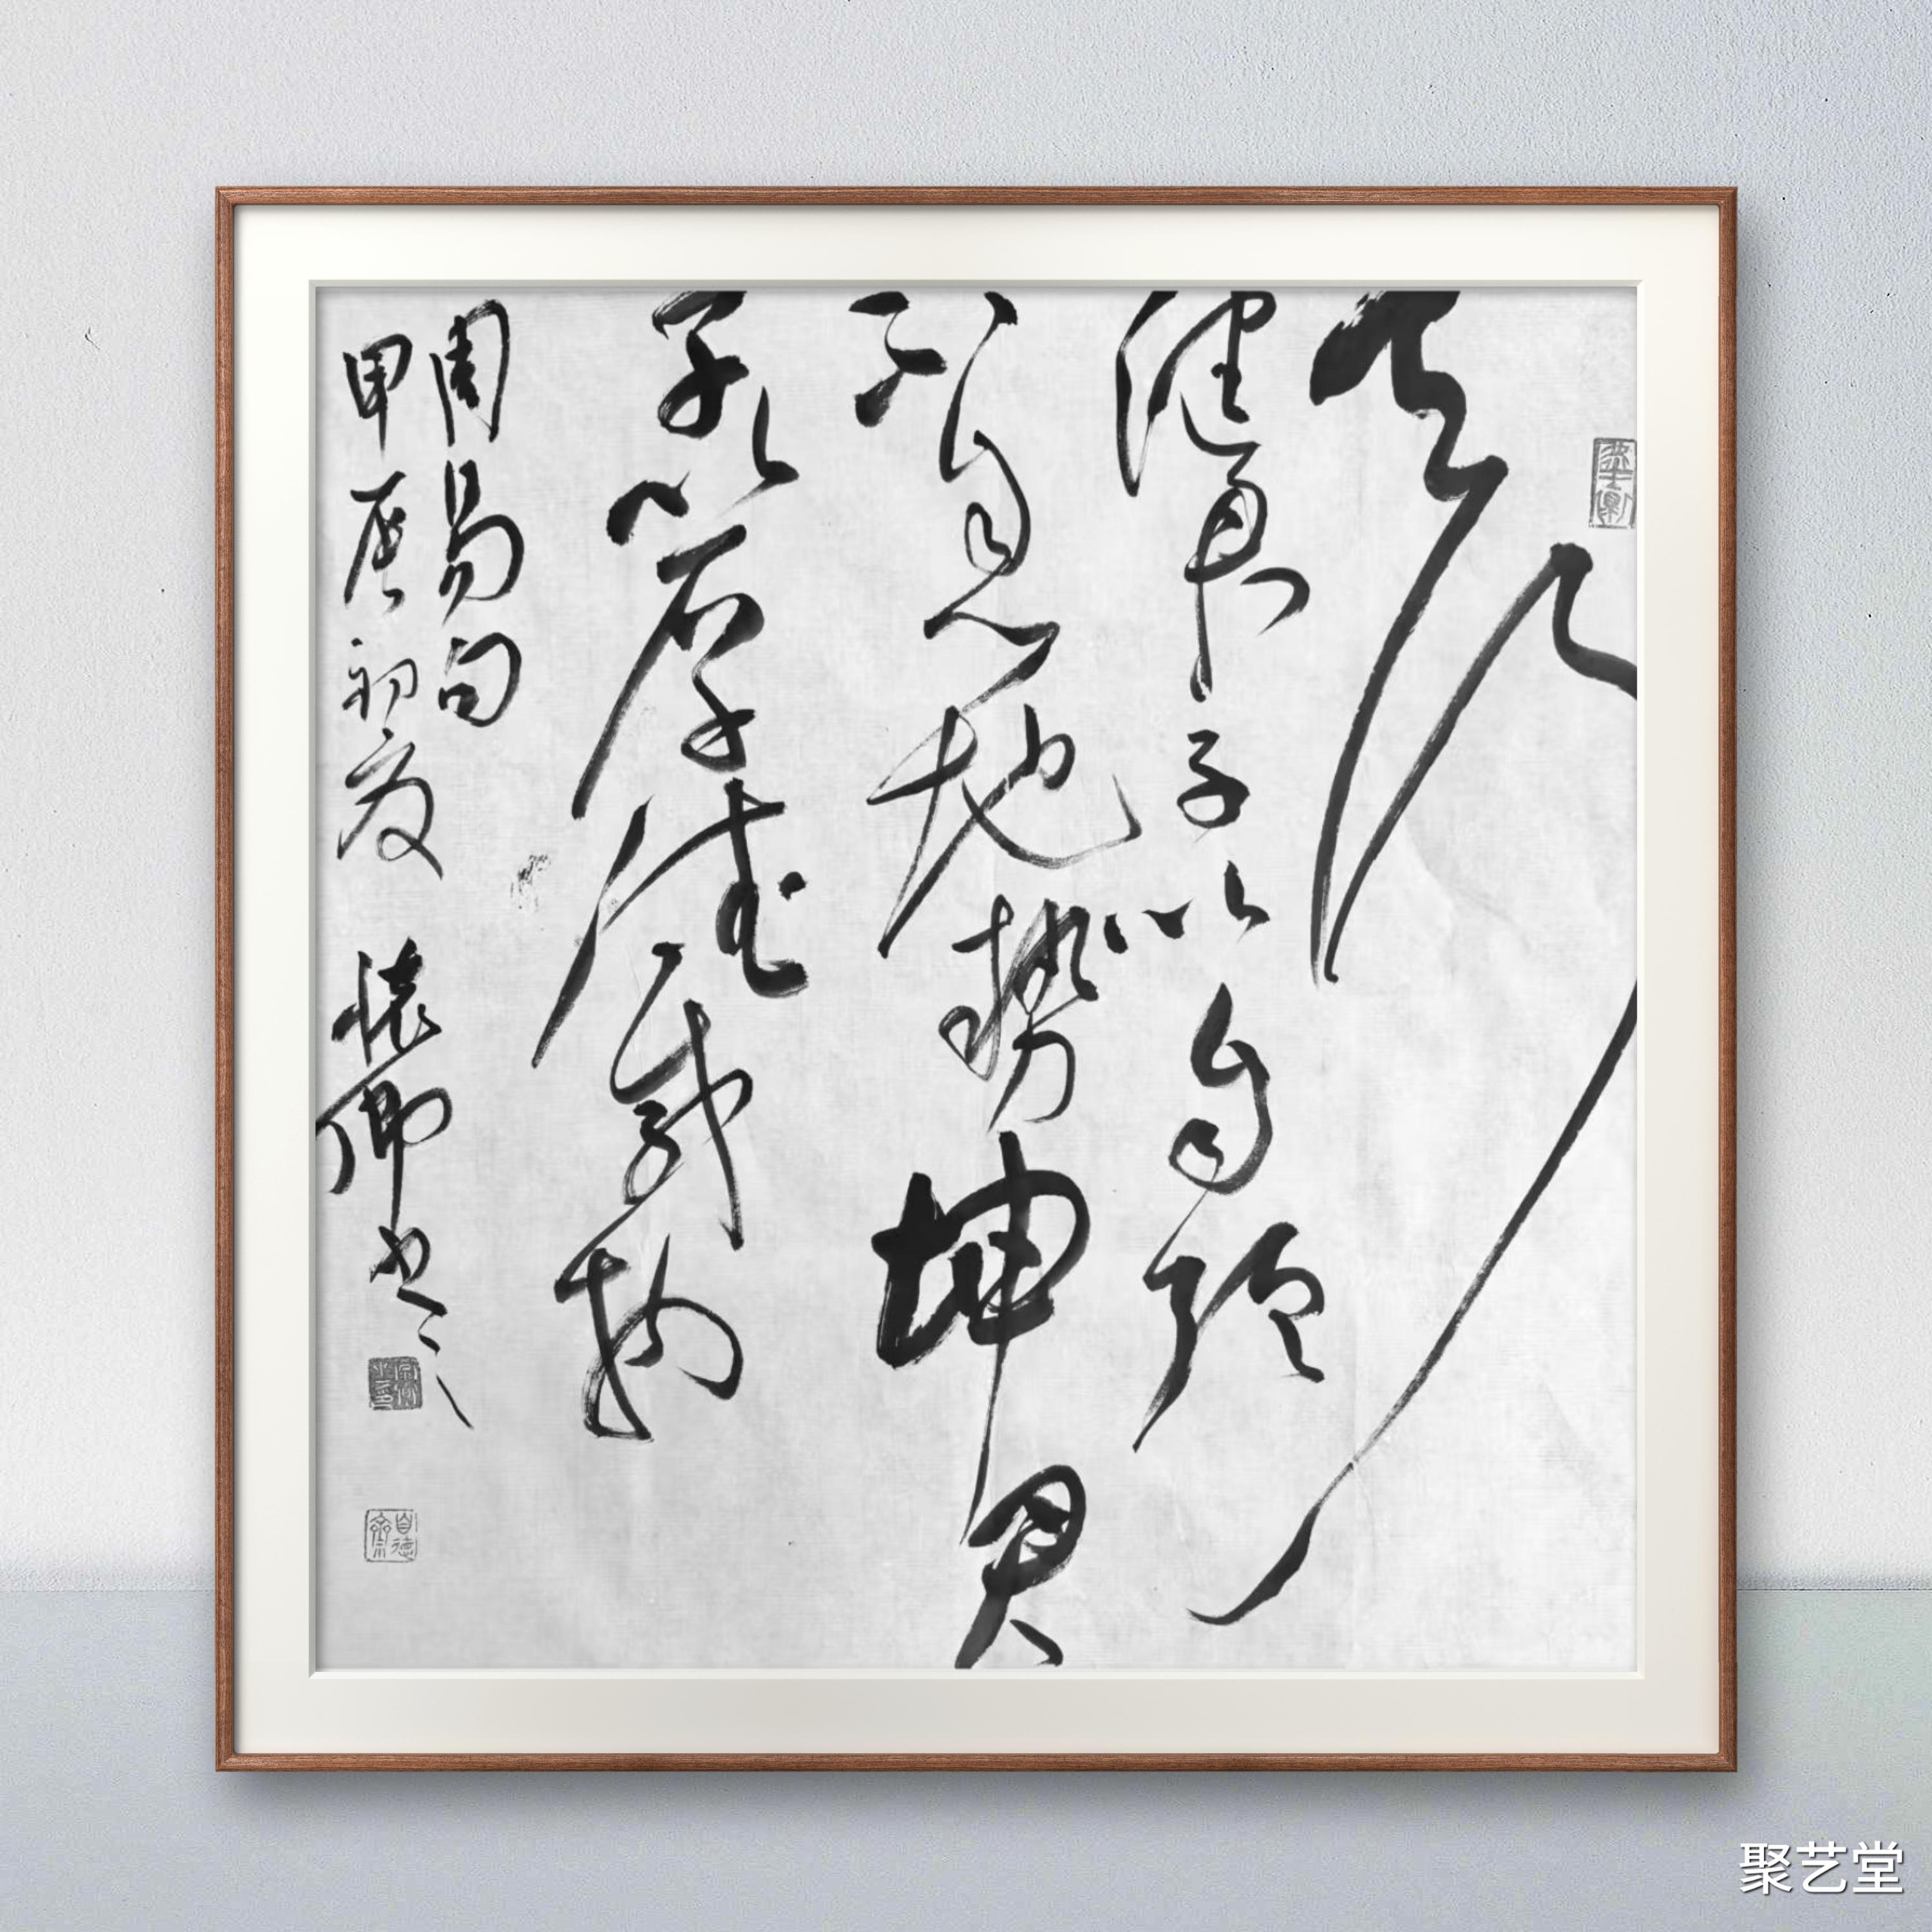 天行
健君子以自強
不息地勢坤君
子以厚德載物
周易句
甲辰初夏 懷卿書
聚艺堂